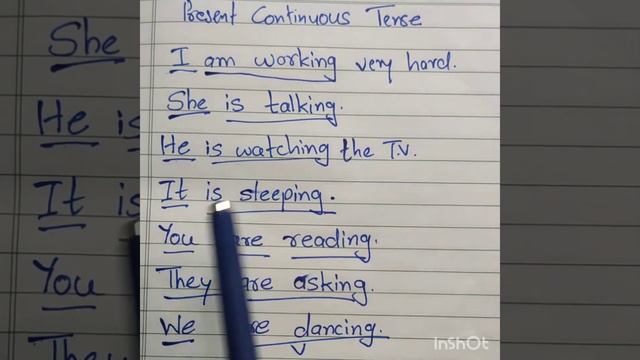 Present Continuous Tense
I am working very hard.
She is talking.
He is watching the T.V.
It is sleeping.
You are reading.
They are asking.
We are dancing.
She
He is
It is
You
They
InShOt